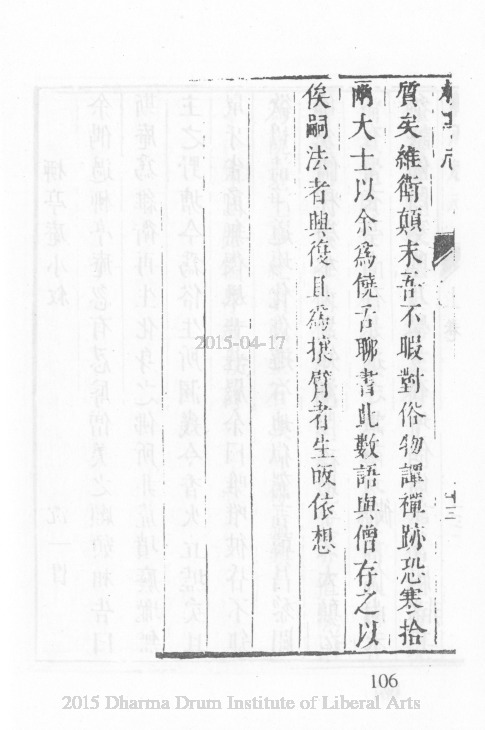 質矣維衛顛末吾不暇對俗物譚禪跡恐寒拾
兩大士以余為饒舌聊書此數語與僧存之以
俟嗣法者興復且為攘臂者生皈依想
十三
2015-04-17
106
2015 Dharma Drum Institute of Liberal Arts